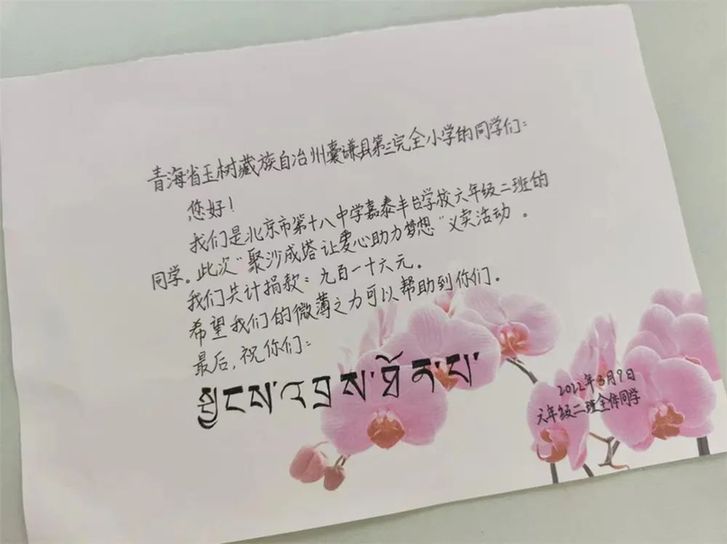 青海省玉树藏族自治州囊谦县第三完全小学的同学们:
您好!
我们是北京市第十八中学嘉泰丰台学校六年级二班的
同学。此次"聚沙成塔 让爱心助力梦想"义卖活动。
我们共计捐款:九百一十六元。
希望我们的微薄之力可以帮助到你们。
最后,祝你们:
སྦྱངས་འབྲས་ཐོན་པ་
2022年3月9日
六年级二班全体同学